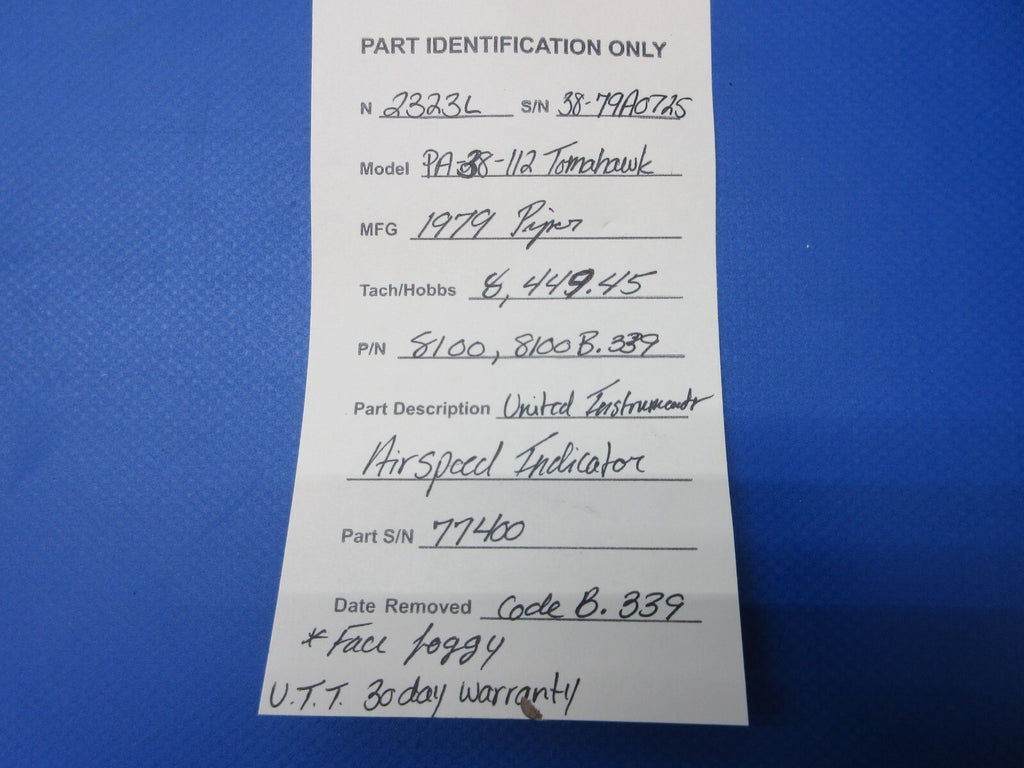 PART IDENTIFICATION ONLY
N 2323L S/N 38-79A0725
Model PA-38-112 Tomahawk
MFG 1979 Piper
Tach/Hobbs 8,449.45
P/N 8100, 8100 B.339
Part Description United Instruments
Airspeed Indicator
Part S/N 77400
Date Removed Code B. 339
* Face foggy
U.T.T. 30 day warranty